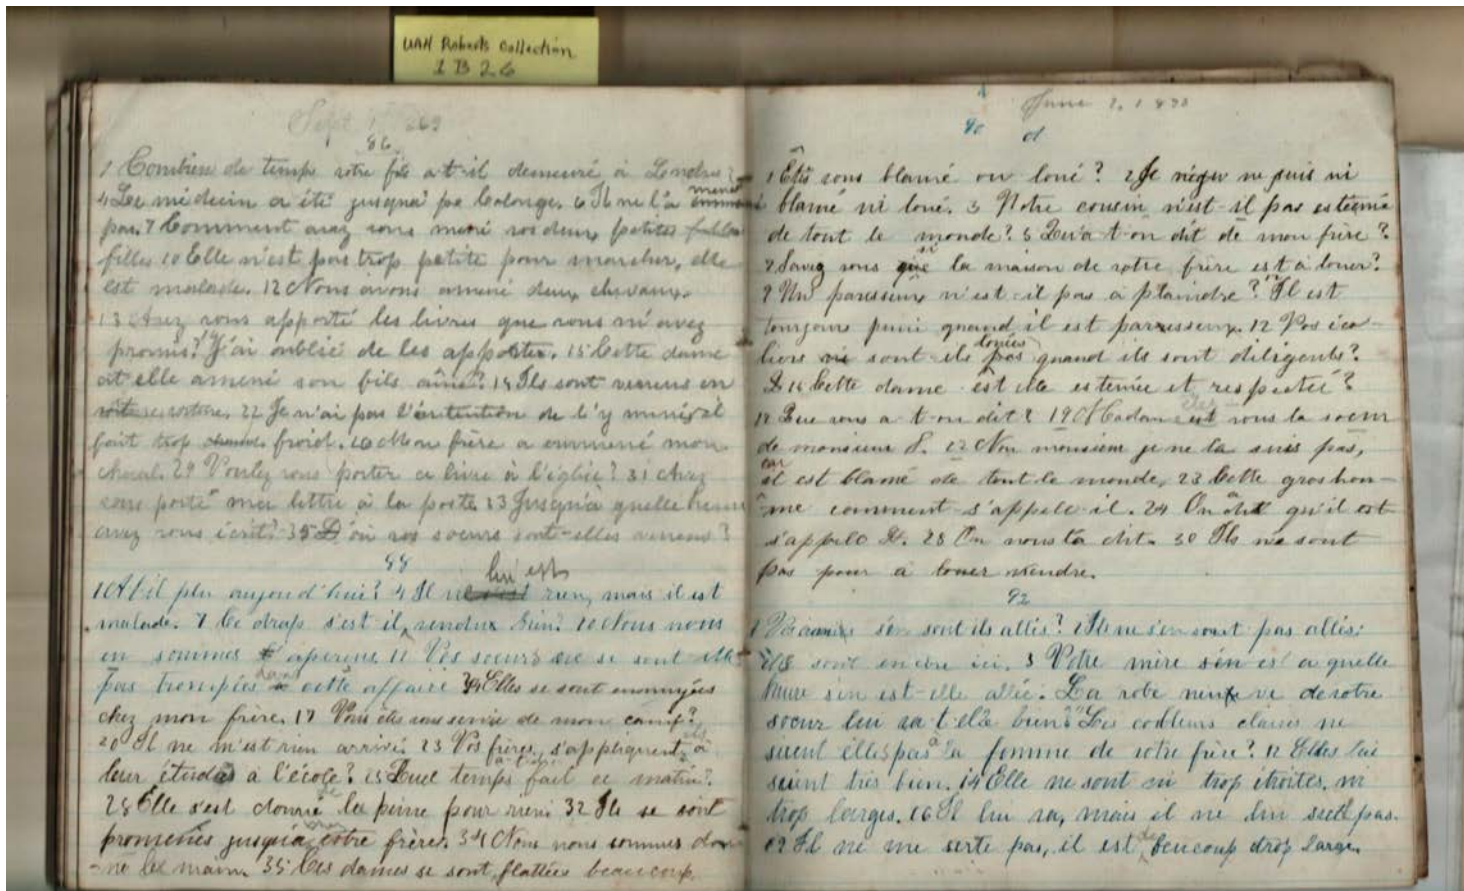 UAH Roberts Collection
1 B 26
Sept 1 69
86
1 Combien de temps votre fils a-t-il demeuré à Londres?
4 Le médecin a été jusqu'à Cologne. 6 Il ne l'a mené
pas. 7 Comment avez vous mené vos deux petites
filles 10 Elle n'est pas trop petite pour marcher, elle
est malade. 12 Nous avons amené deux chevaux.
13 Avez vous apporté les livres que vous m'avez
promis? J'ai oublié de les apporter. 15 Cette dame
at elle amené son fils aîné? 18 Ils sont venus en
voiture. 22 Je n'ai pas l'intention de l'y mener il
fait trop froid. 26 Mon frère a emmené mon
cheval. 29 Voulez vous porter ce livre à l'église? 31 Avez
vous porté ma lettre à la poste 33 Jusqu'à quelle heure
avez vous écrit? 35 D'où vos soeurs sont-elles venues?
88
1 At-il plu aujourd'hui? 4 Il lui est rien, mais il est
malade. 7 Ce drap s'est il vendu bien? 10 Nous nous
en sommes aperçus 11 Vos soeurs ne se sont elles
pas trompées dans cette affaire? 14 Elles se sont ennuyées
chez mon frère. 17 Vous êtes vous servie de mon canif?
20 Il ne m'est rien arrivé. 23 Vos frères s'appliquent ils à
leur études à l'école? 25 Quel temps fait ce matin?
28 Elle s'est donné la peine pour rien 32 Ils se sont
promenés jusqu'à votre frère. 34 Nous nous sommes don-
né la main. 35 Ces dames se sont flattées beaucoup.
June 2, 1870
90
1 Êtes vous blamé ou loué? 2 Je ne suis ni
blamé ni loué. 3 Notre cousin n'est-il pas estiémé
de tout le monde? 5 Qu'a t-on dit de mon frère?
7 Savez vous si la maison de votre frère est à louer?
9 Un paresseux n'est-il pas à plaindre? Il est
toujours puni quand il est paresseux. 12 Vos éco-
liers sont-ils loués quand ils sont diligents?
15 Cette dame est elle estemée et respectée?
17 Que vous a t-on dit? 19 Madame êtes vous la soeur
de monsieur S. 22 Non monsieur je ne la suis pas,
car il est blamé de tout le monde, 23 Cette gros hom-
me comment s'appele-il. 24 On dit qu'il
s'appele D. 28 On nous la dit. 30 Ils ne sont
pas pour à louer vendre.
92
1 Vos amis s'en sont ils allés? 2 Ils ne s'en sont pas allés:
ils sont encore ici. 3 Votre mère s'en est a quelle
heure s'en est-elle allée. La robe neuve de votre
soeur lui va-t-elle bien? Les couleurs claires ne
sieent elles pas à la femme de votre frère? 12 Elles lui
sieint très bien. 14 Elle ne sont ni trop étroites, ni
trop larges. 16 Il lui va, mais il ne lui sied pas.
19 Il ne me serte pas, il est de beucoup trop large.